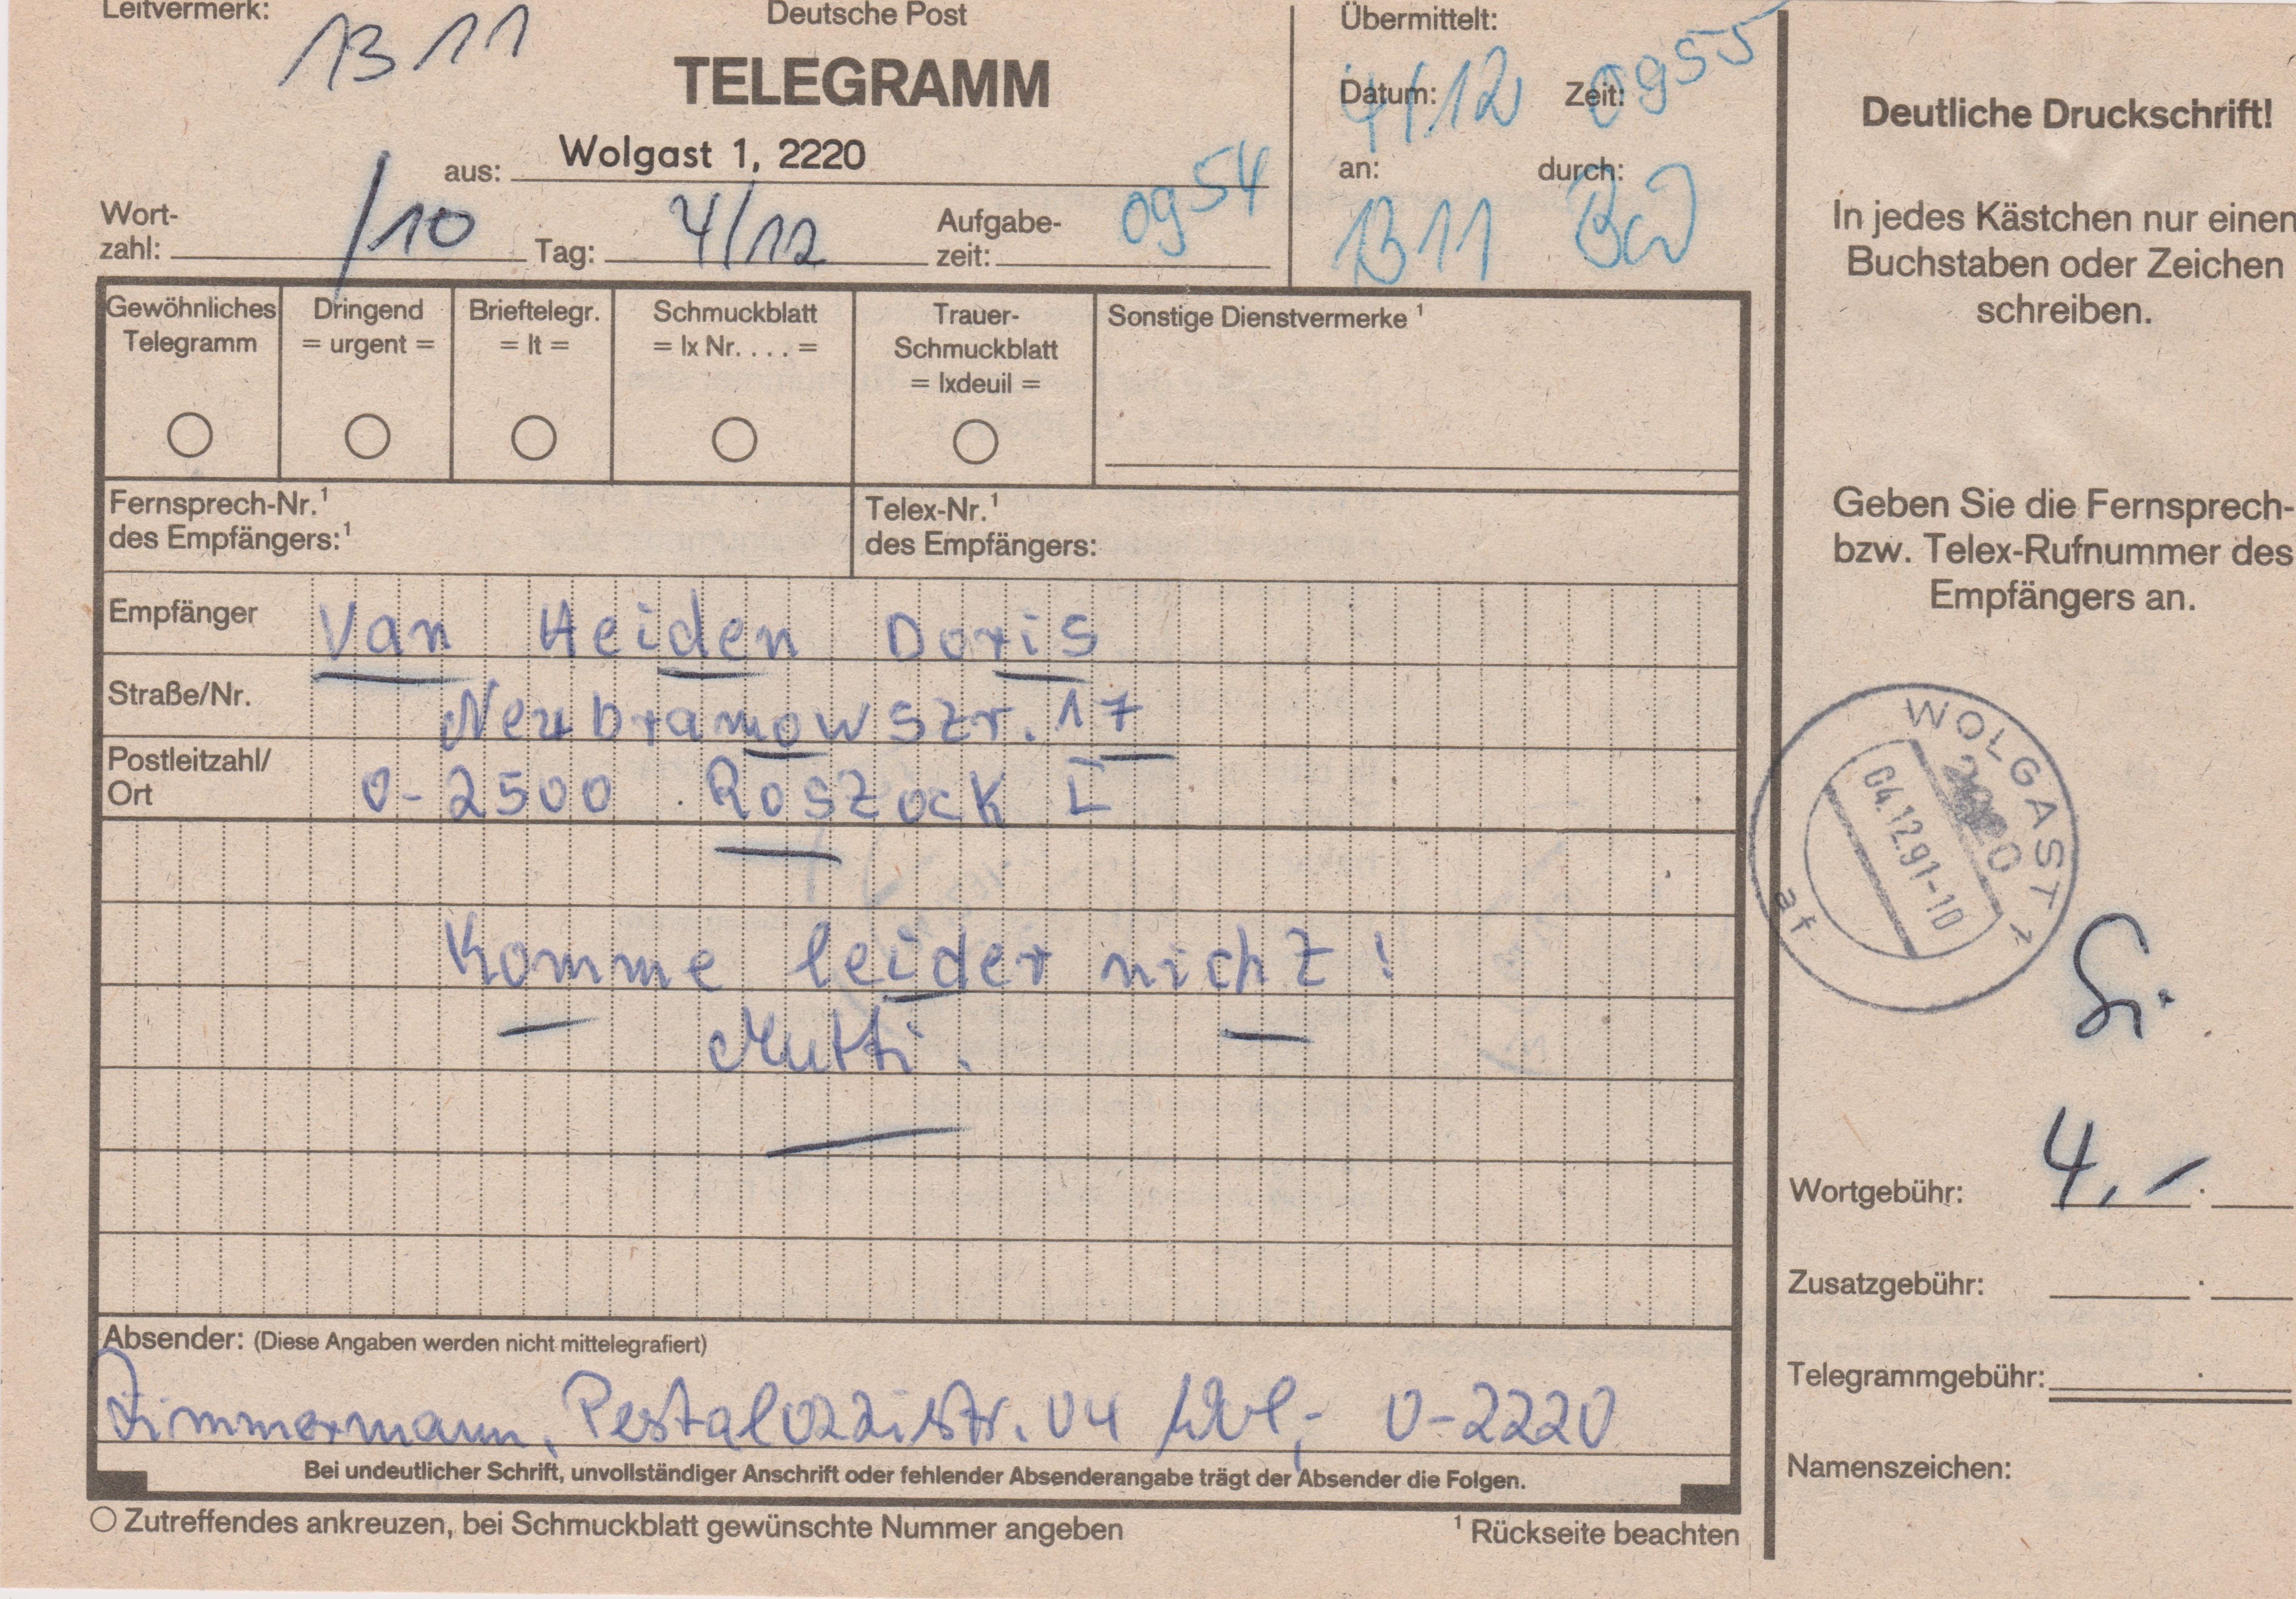 Leitvermerk:
B 11
Deutsche Post
TELEGRAMM
aus: Wolgast 1, 2220
Wort-
zahl: /10 Tag: 4/12 Aufgabe-
zeit: 09 54
Übermittelt:
Datum: 4/12 Zeit: 09 55
an: durch:
B 11
Gewöhnliches
Telegramm
Dringend
= urgent =
Brieftelegr.
= lt =
Schmuckblatt
= lx Nr. . . . =
Trauer-
Schmuckblatt
= lxdeuil =
Sonstige Dienstvermerke ¹
Fernsprech-Nr.¹
des Empfängers:¹
Telex-Nr.¹
des Empfängers:
Empfänger Van Heiden Doris
Straße/Nr. Neubramowstr. 17
Postleitzahl/
Ort O-2500 Rostock I
Komme leider nicht !
Mutti.
Absender: (Diese Angaben werden nicht mittelegrafiert)
Zimmermann, Pestalozzistr. 04 Wol,- O-2220
Bei undeutlicher Schrift, unvollständiger Anschrift oder fehlender Absenderangabe trägt der Absender die Folgen.
Zutreffendes ankreuzen, bei Schmuckblatt gewünschte Nummer angeben
¹ Rückseite beachten
Deutliche Druckschrift!
In jedes Kästchen nur einen
Buchstaben oder Zeichen
schreiben.
Geben Sie die Fernsprech-
bzw. Telex-Rufnummer des
Empfängers an.
WOLGAST 1
04.12.91-10
af
Wortgebühr: 4,-
Zusatzgebühr:
Telegrammgebühr:
Namenszeichen: